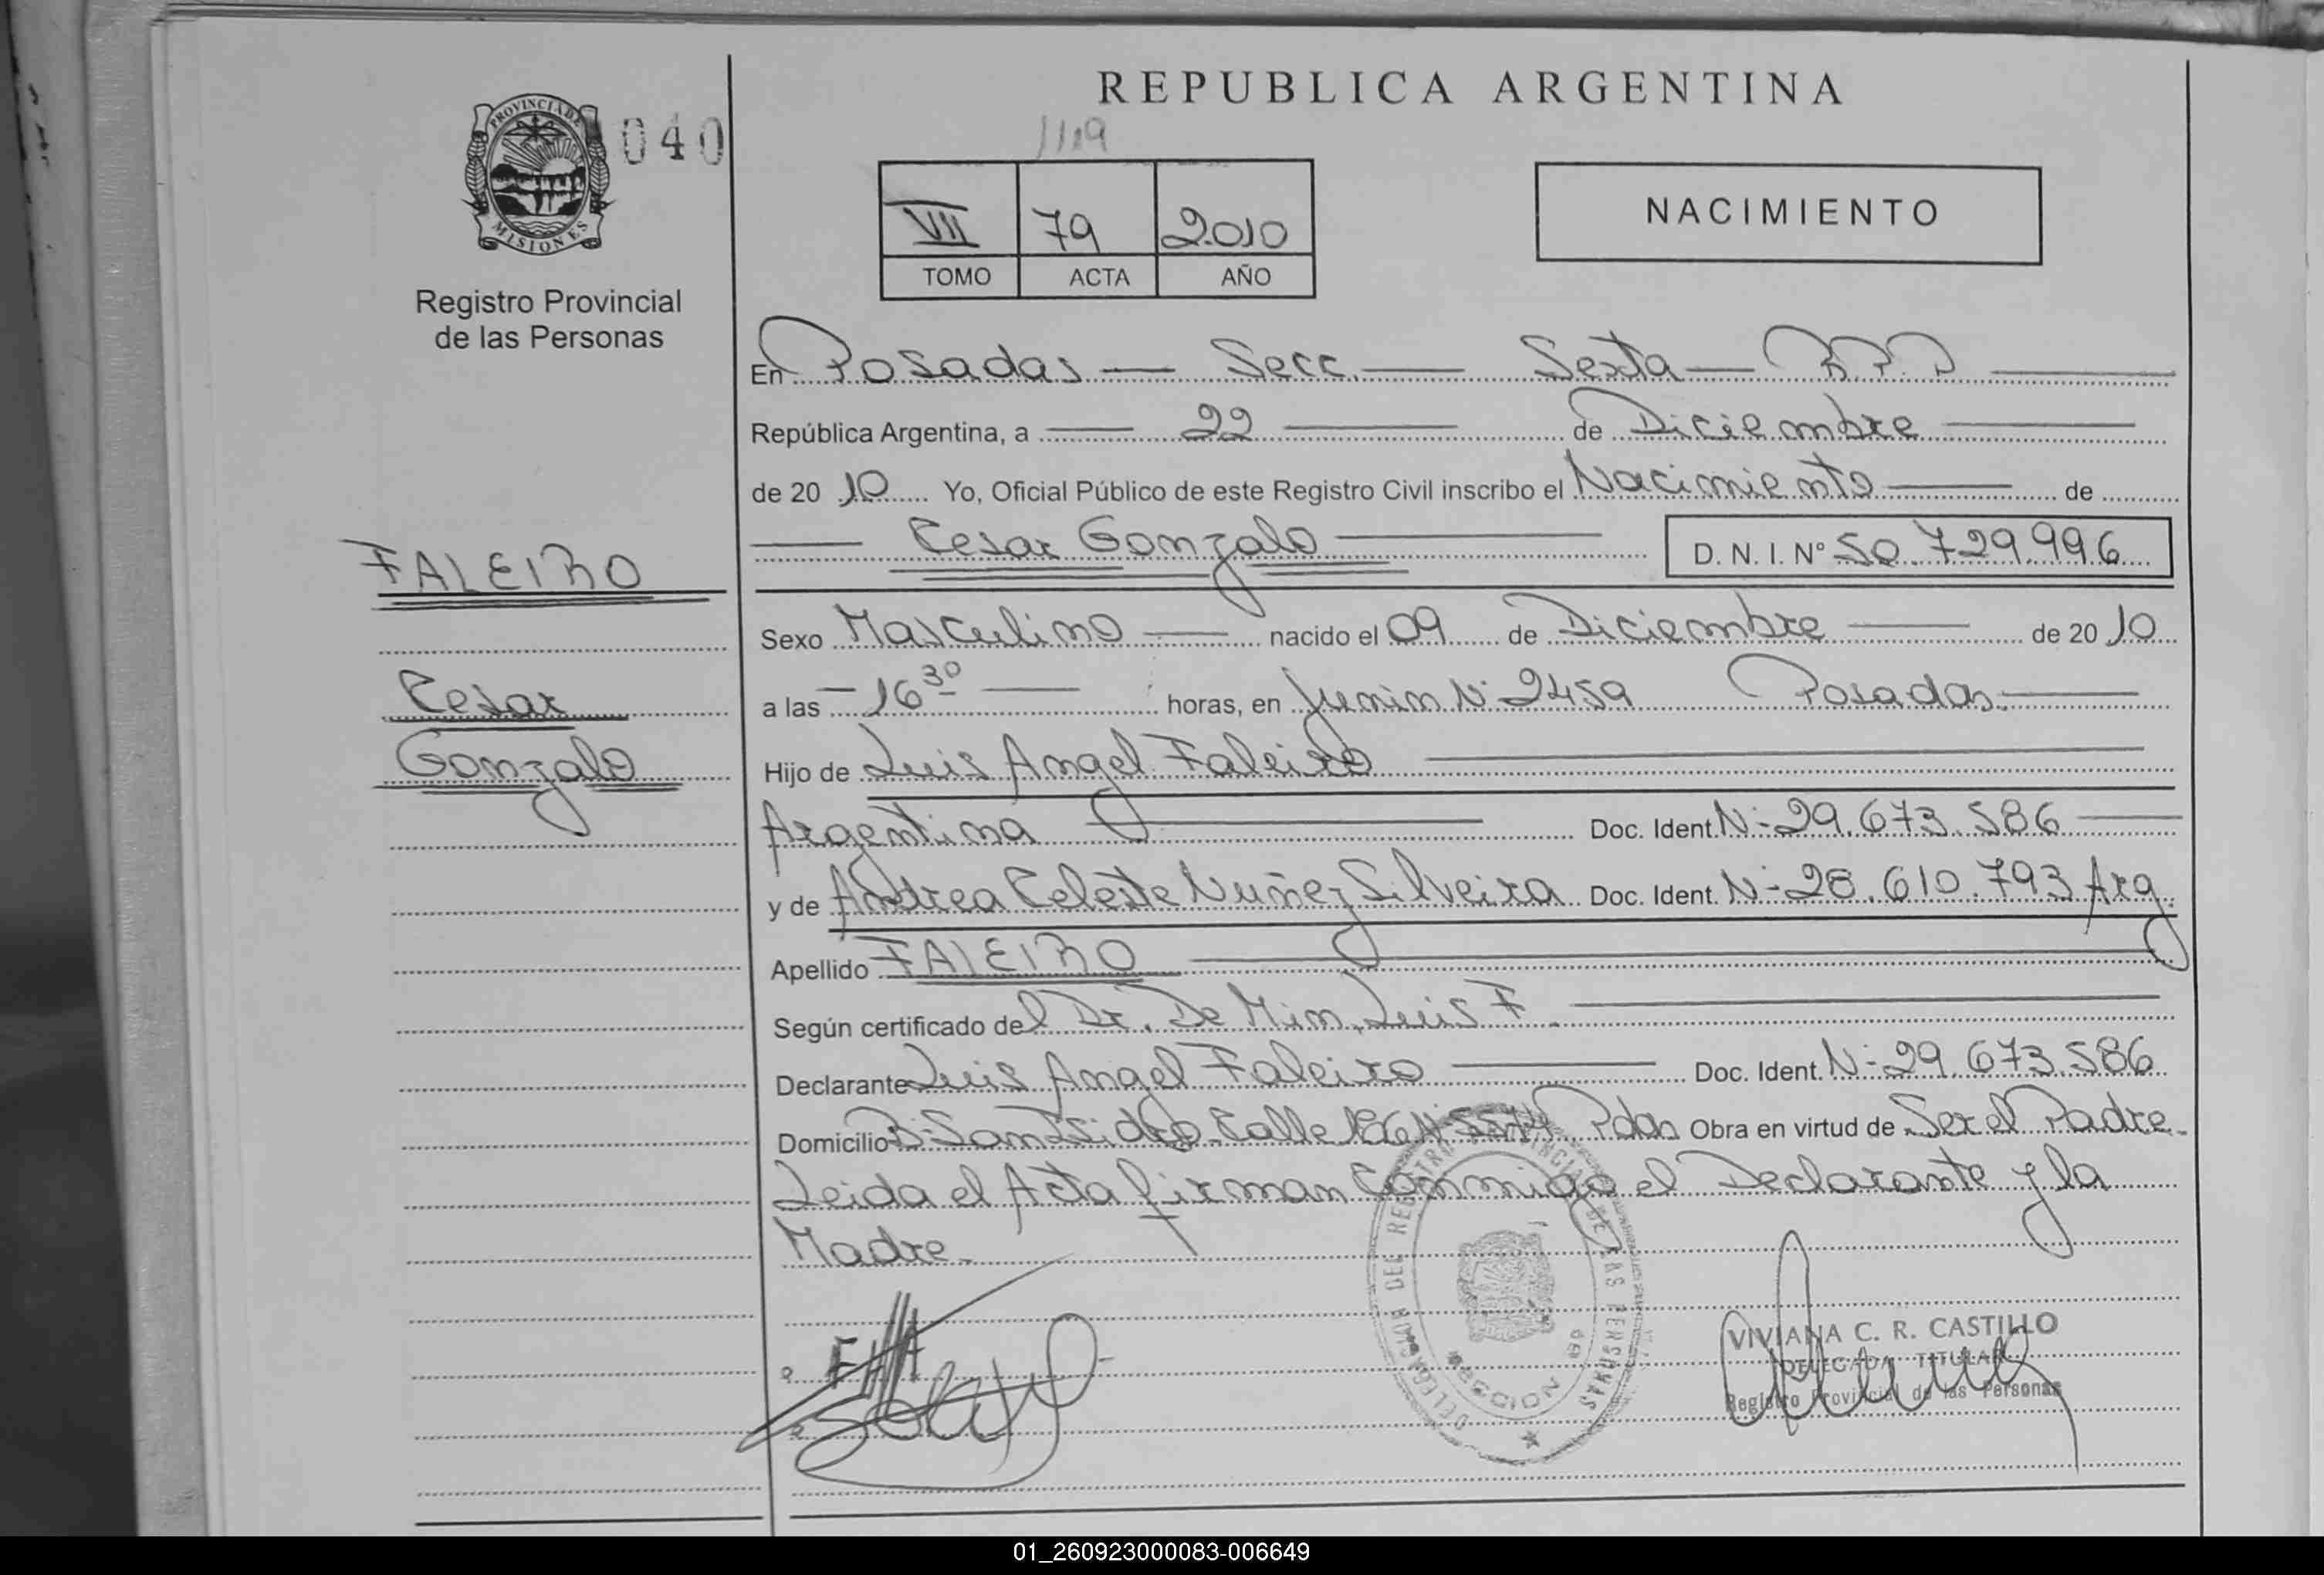 REPUBLICA ARGENTINA
PROVINCIA DE
MISIONES
040
1119
VII 79 2010
TOMO ACTA AÑO
NACIMIENTO
Registro Provincial
de las Personas
En Posadas — Secc. — Sexta — R.P.P
República Argentina, a — 22 — de Diciembre
de 2010 Yo, Oficial Público de este Registro Civil inscribo el Nacimiento — de
Cesar Gonzalo
D. N. I. N° 50.729.996
FALEIRO
Cesar
Gonzalo
Sexo Masculino — nacido el 09 de Diciembre — de 2010
a las — 16 30 — horas, en Junin N° 2459 Posadas.
Hijo de Luis Angel Faleiro
Argentina — Doc. Ident. N° 29.673.586
y de Andrea Celeste Nuñez Silveira Doc. Ident. N° 28.610.793 Arg.
Apellido FALEIRO
Según certificado del Dr. De Mim, Luis F.
Declarante Luis Angel Faleiro — Doc. Ident. N° 29.673.586
Domicilio B° San Isidro Calle 186 N° Pdas Obra en virtud de Ser el Padre.
Leida el Acta firman Conmigo el Declarante y la
Madre.
DELEGACION DEL REGISTRO PROVINCIAL DE LAS PERSONAS
SECCION 6a
VIVIANA C. R. CASTILLO
DELEGADA TITULAR
Registro Provincial de las Personas
01_260923000083-006649